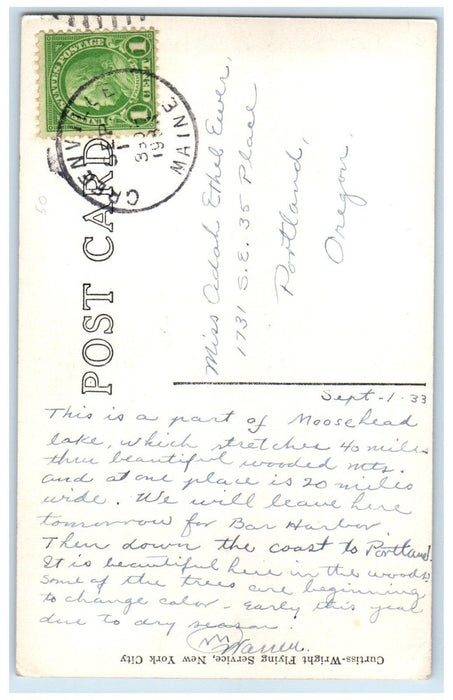 UNITED STATES POSTAGE
1 CENT 1
GREENVILLE
SEP
1
1933
MAINE
50
POST CARD
Miss Adah Ethel Ewer,
1731 S.E. 35 Place
Portland,
Oregon.
Sept-1-33
This is a part of Moosehead
lake, which stretches 40 miles
thru beautiful wooded mts.
and at one place is 20 miles
wide. We will leave here
tomorrow for Bar Harbor
Then down the coast to Portland.
It is beautiful here in the woods
Some of the trees are beginning
to change color - Early this year
due to dry season.
Warren
Curtiss-Wright Flying Service, New York City